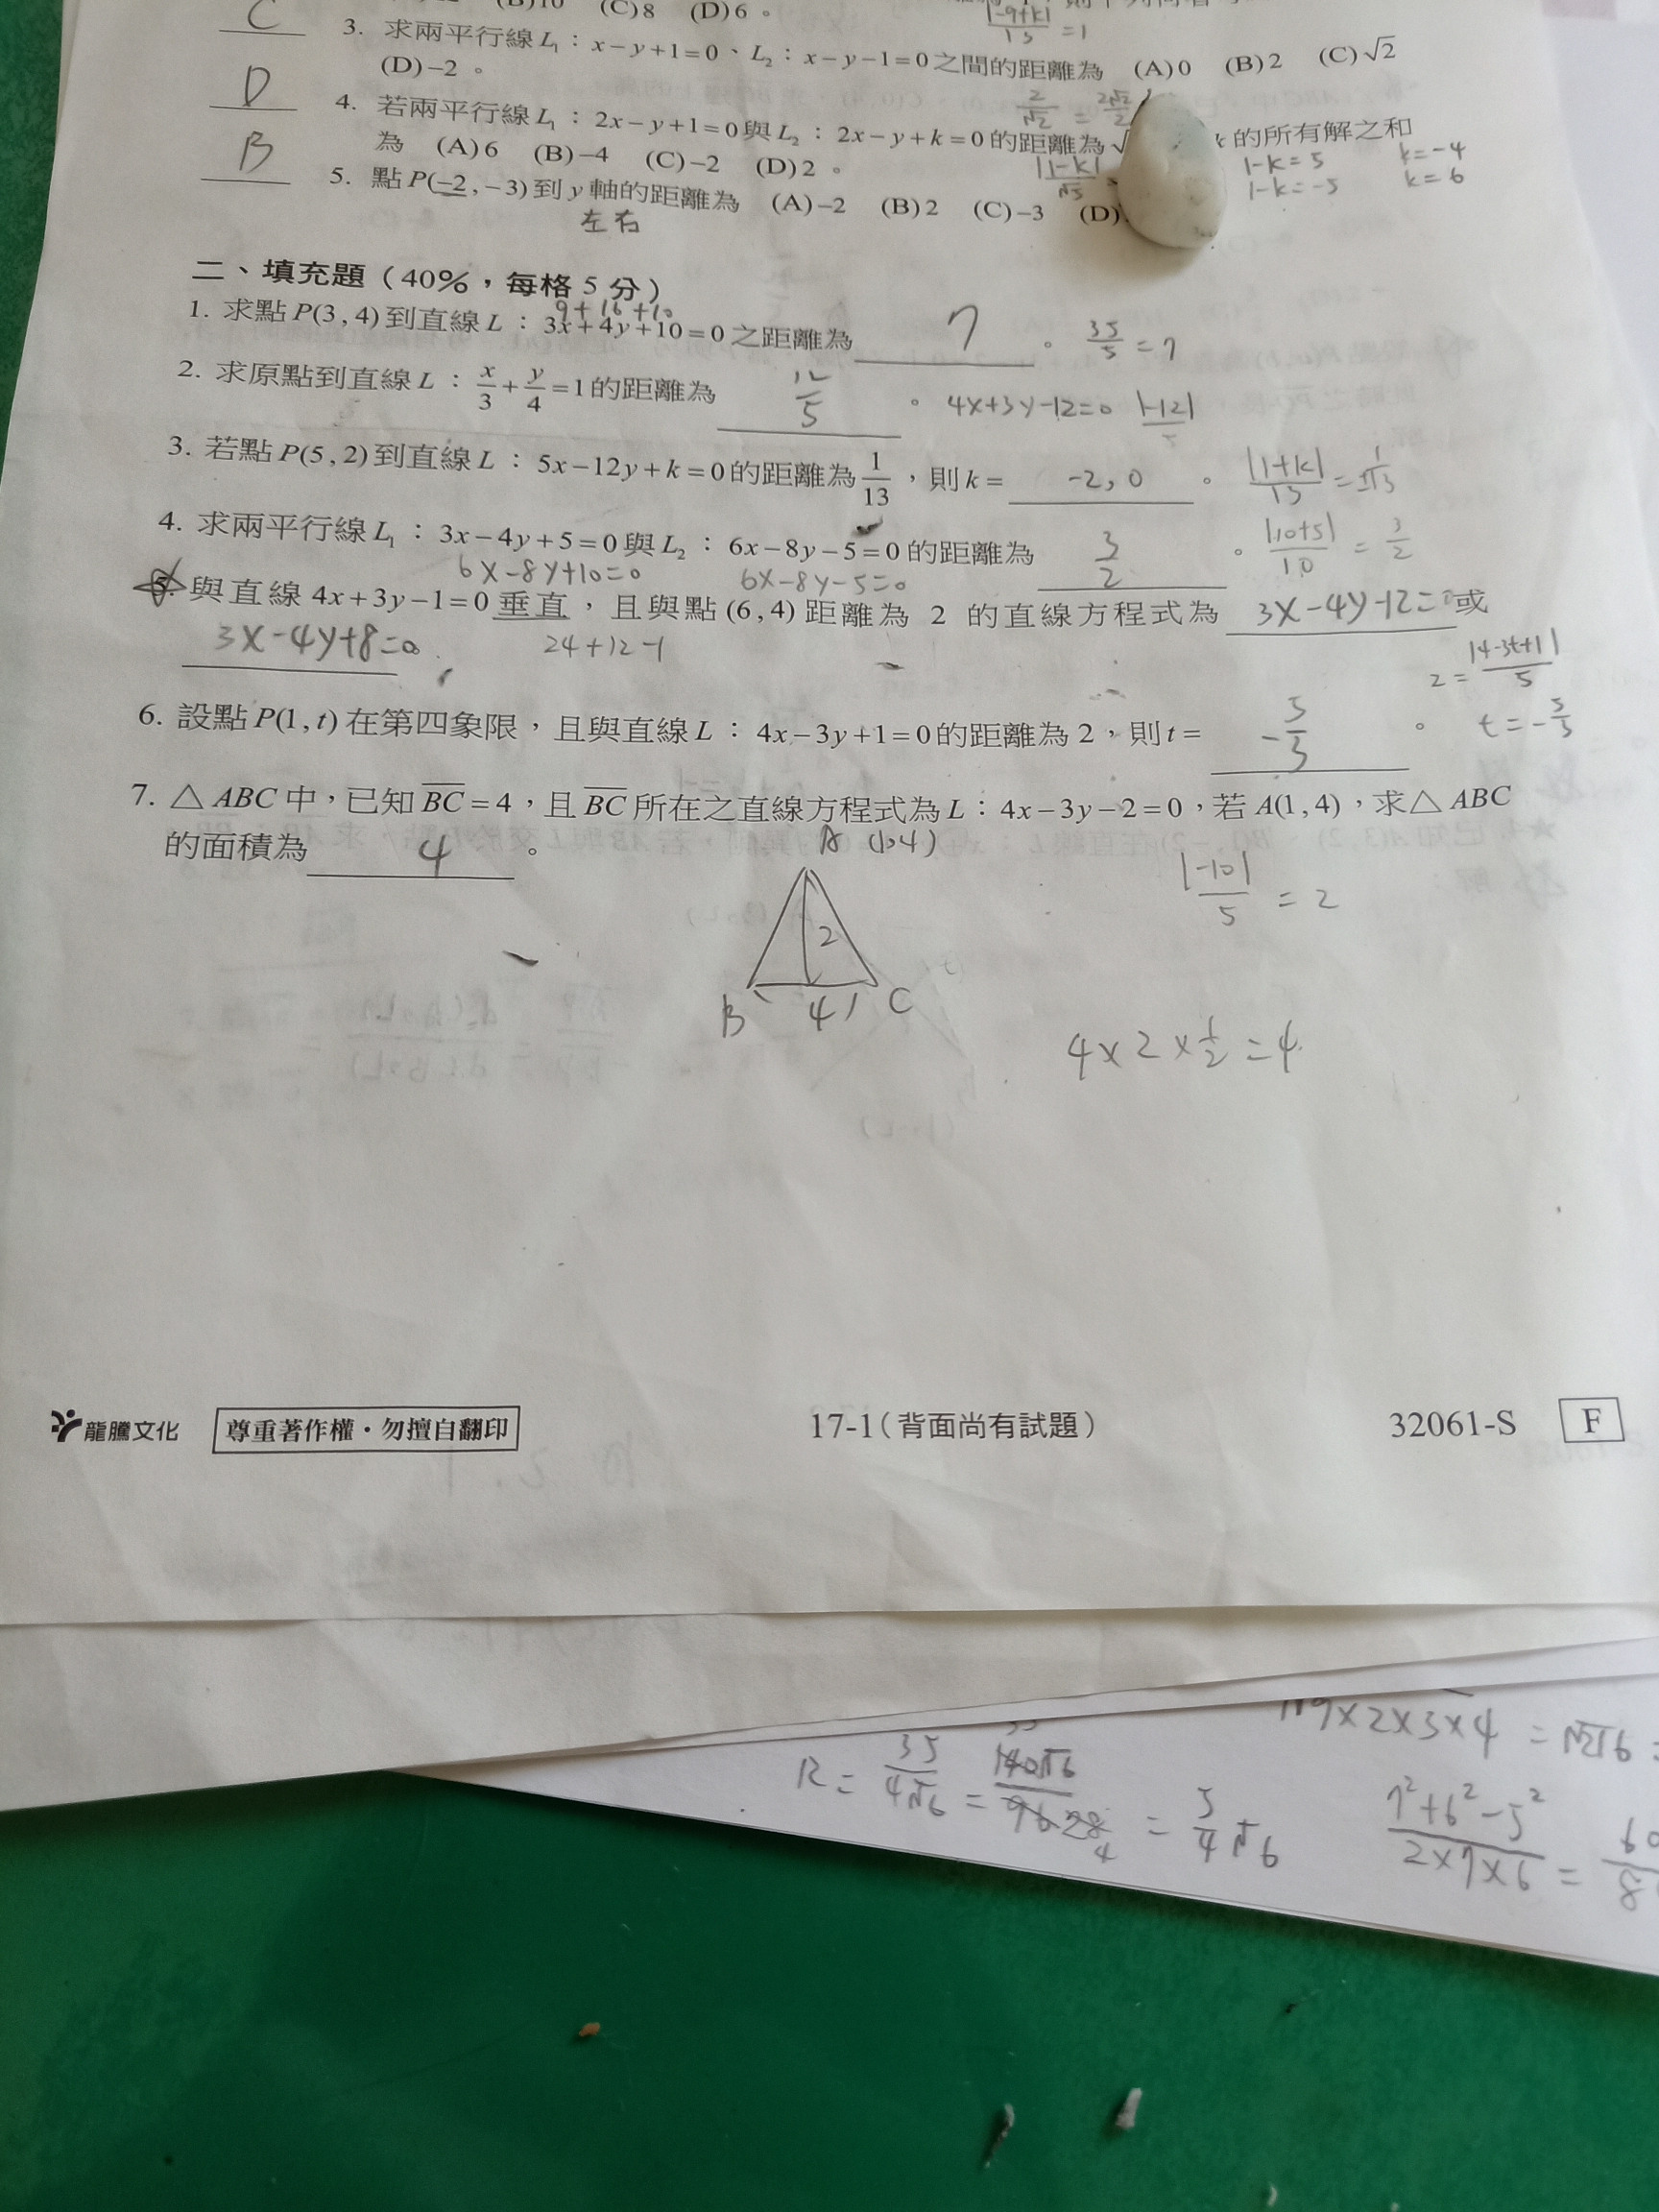 C (B)10 (C)8 (D)6。 |-9+k|/15 =1
3. 求兩平行線L₁：x−y+1=0、L₂：x−y−1=0之間的距離為 (A)0 (B)2 (C)√2
D (D)−2。 2/√2 = 2√2/2
4. 若兩平行線L₁：2x−y+1=0與L₂：2x−y+k=0的距離為√ 的所有解之和
B 為 (A)6 (B)−4 (C)−2 (D)2。 |1-k|/√5 1-k=5 k=-4
1-k=-5 k=6
5. 點P(−2,−3)到y軸的距離為 (A)−2 (B)2 (C)−3 (D)
左右
二、填充題（40%，每格5分）
9+16+10
1. 求點P(3,4)到直線L：3x+4y+10=0之距離為 7 。 35/5 =7
2. 求原點到直線L：x/3+y/4=1的距離為 12/5 。 4x+3y-12=0 |-12|/5
3. 若點P(5,2)到直線L：5x−12y+k=0的距離為1/13，則k= -2,0 。 |1+k|/13 =1/13
4. 求兩平行線L₁：3x−4y+5=0與L₂：6x−8y−5=0的距離為 3/2 。 |10+5|/10 = 3/2
6x-8y+10=0 6x-8y-5=0
5. 與直線4x+3y−1=0垂直，且與點(6,4)距離為 2 的直線方程式為 3x-4y-12=0 或
3x-4y+8=0 24+12-1
2= |4-3t+1|/5
6. 設點P(1,t)在第四象限，且與直線L：4x−3y+1=0的距離為2，則t= -5/3 。 t=-5/3
7. △ABC中，已知BC=4，且BC所在之直線方程式為L：4x−3y−2=0，若A(1,4)，求△ABC
的面積為 4 。
A (1,4)
|-10|/5 =2
2
B 4 C
4×2×1/2=4
龍騰文化 尊重著作權·勿擅自翻印 17-1(背面尚有試題) 32061-S F
9×2×3×4 =
R= 35/4√6 = 140√6/96 = 5/4 √6
7²+6²-5²/2×7×6 =